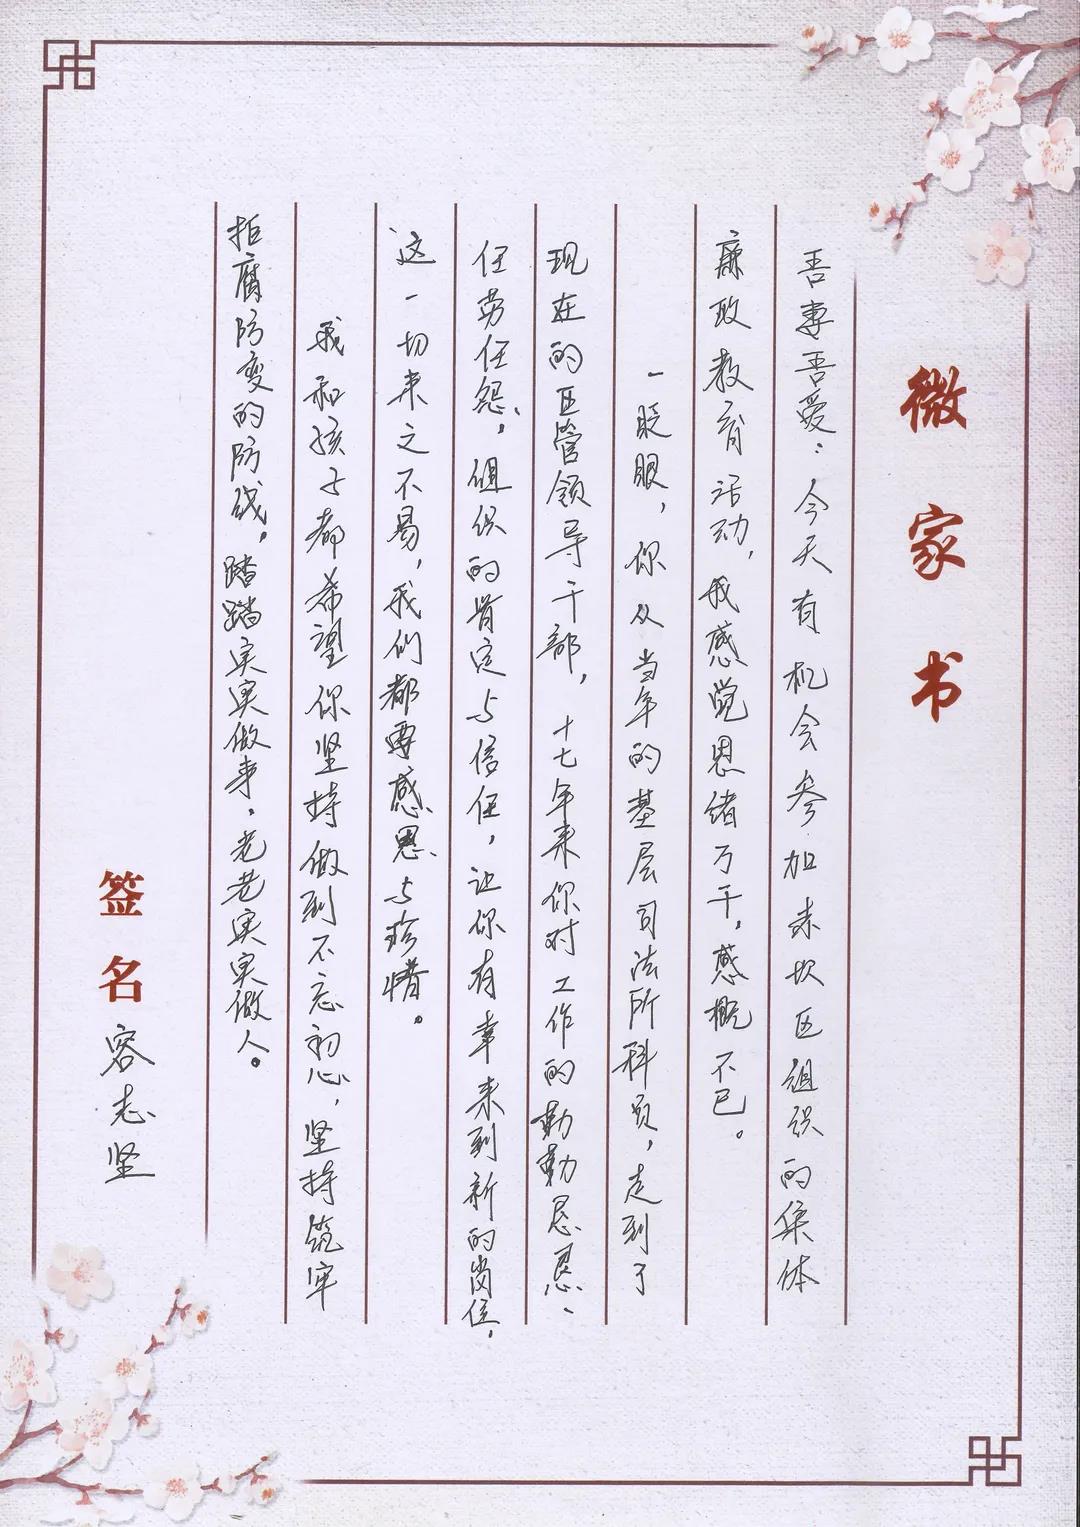 微家书
吾妻吾爱：今天有机会参加赤坎区组织的集体
廉政教育活动，我感觉思绪万千，感概不已。
一眨眼，你从当年的基层司法所科员，走到了
现在的区管领导干部，十七年来你对工作的勤勤恳恳、
任劳任怨，组织的肯定与信任，让你有幸来到新的岗位，
这一切来之不易，我们都要感恩与珍惜。
我和孩子都希望你坚持做到不忘初心，坚持筑牢
拒腐防变的防线，踏踏实实做事，老老实实做人。
签名 容志坚